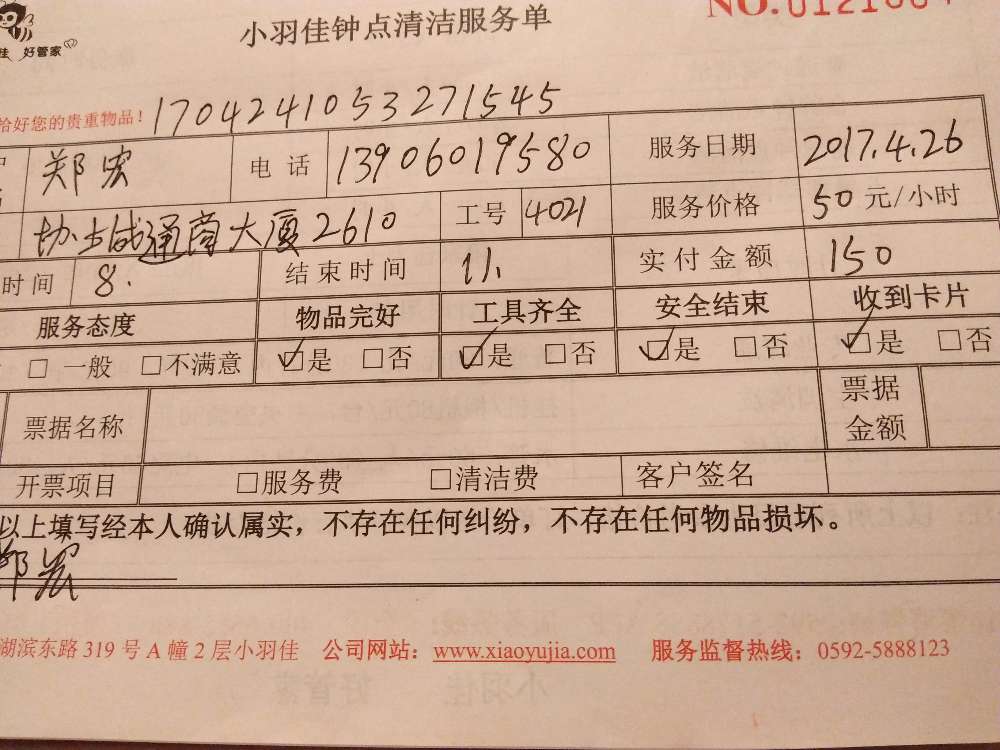 佳 好管家
小羽佳钟点清洁服务单
NO.
给好您的贵重物品！ 1704241053271545
郑宏 电话 13906019580 服务日期 2017.4.26
通商大厦2610 工号 4021 服务价格 50 元/小时
时间 8. 结束时间 11. 实付金额 150
服务态度 物品完好 工具齐全 安全结束 收到卡片
□ 一般 □不满意 ☑是 □否 ☑是 □否 ☑是 □否 ☑是 □否
票据名称 票据金额
开票项目 □服务费 □清洁费 客户签名
以上填写经本人确认属实，不存在任何纠纷，不存在任何物品损坏。
郑宏
湖滨东路 319 号 A 幢 2 层小羽佳 公司网站：www.xiaoyujia.com 服务监督热线：0592-5888123